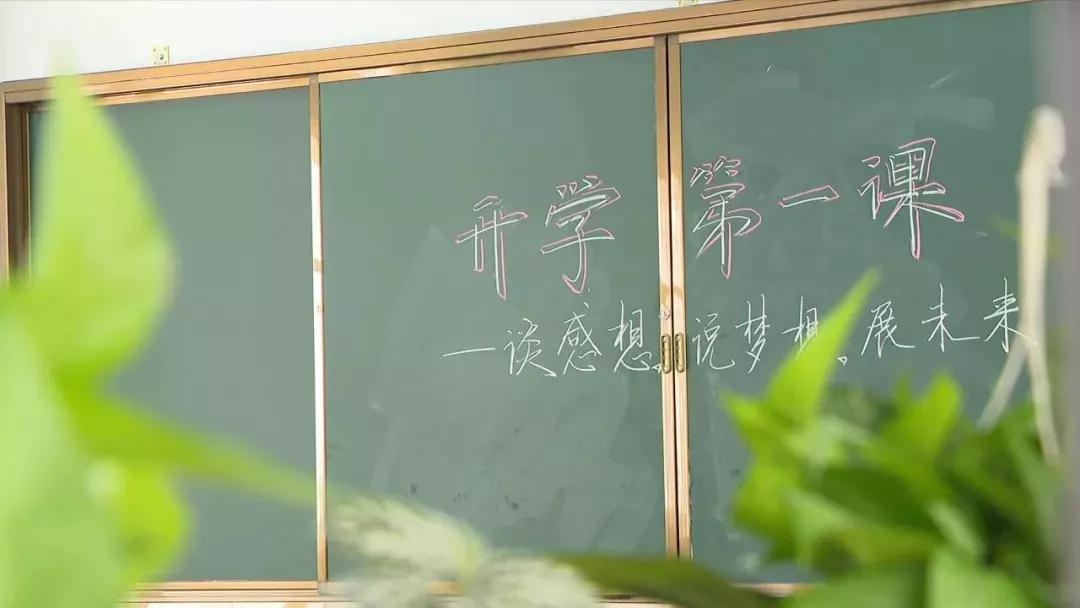 开学第一课
一谈感想、说梦想、展未来